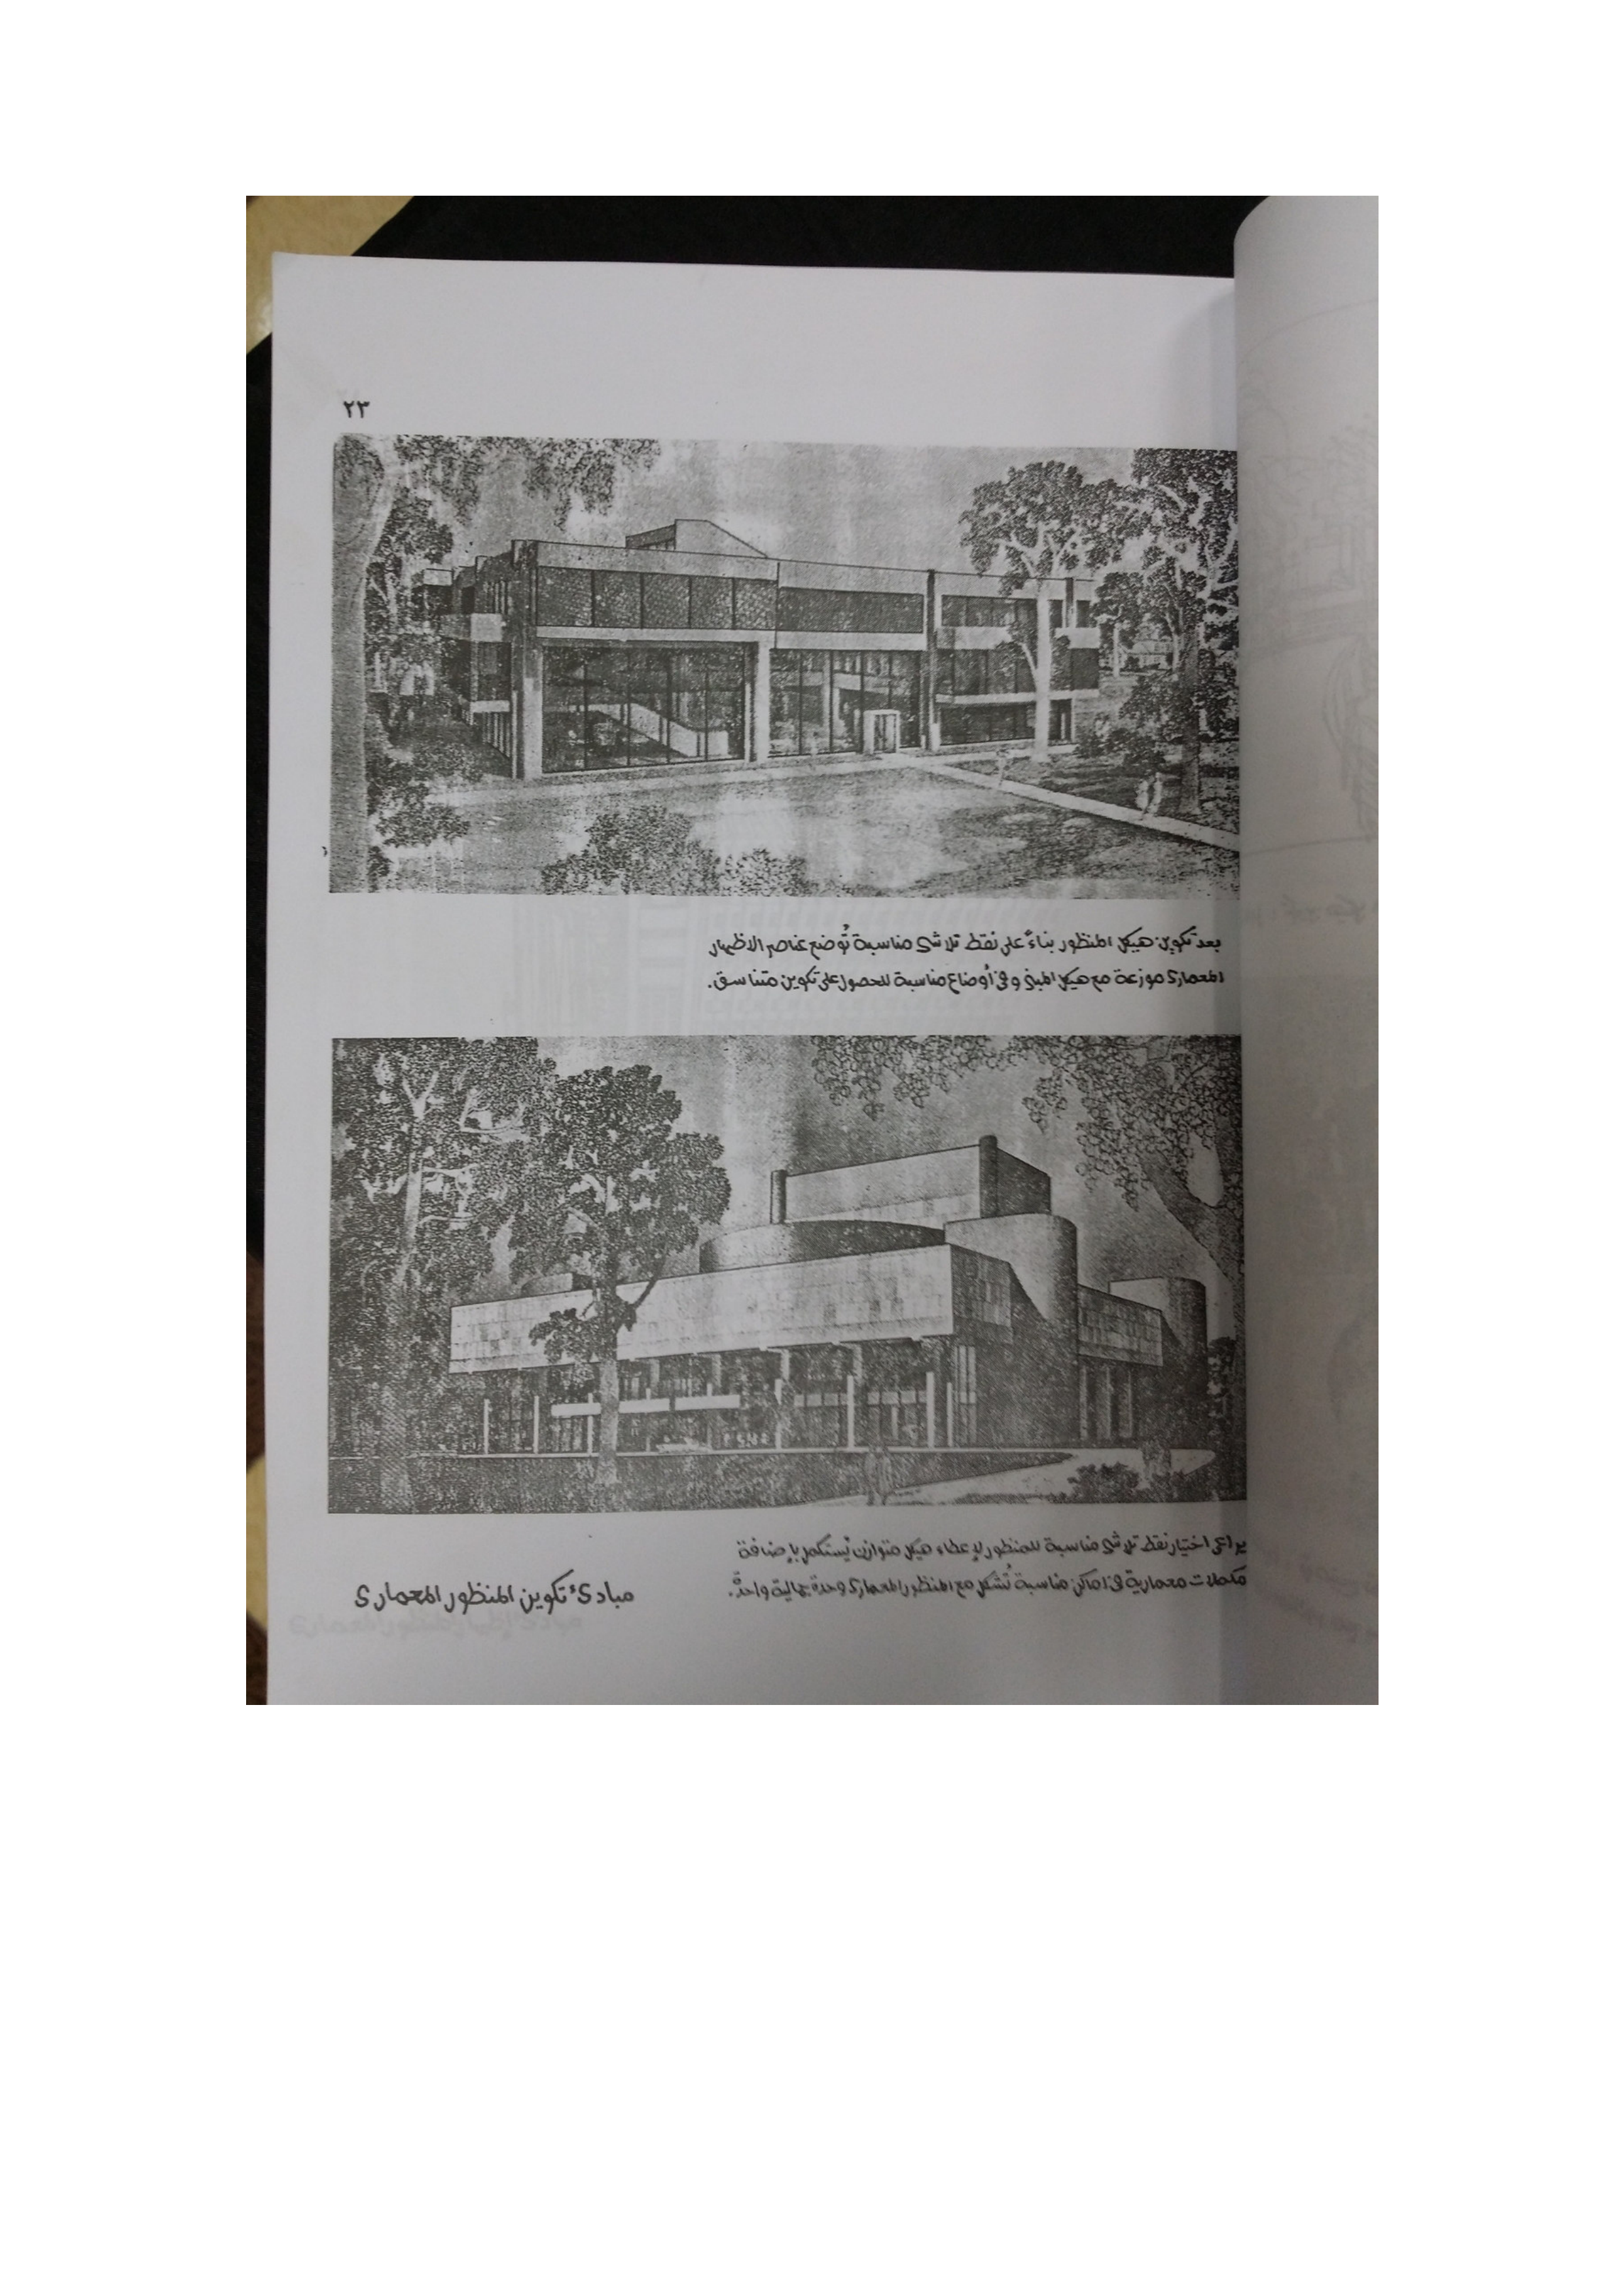 ٢٣
بعد تكوين هيكل المنظور بناءً على نقط تلاشى مناسبة تُوضع عناصر الاظهار
المعمارى موزعة مع هيكل المبنى وفى أوضاع مناسبة للحصول على تكوين متناسق.
يراعى اختيار نقط تلاشى مناسبة للمنظور لإعطاء هيكل متوازن يُستكمل بإضافة
مكملات معمارية فى اماكن مناسبة تُشكل مع المنظور المعمارى وحدة جمالية واحدة.
مبادئ تكوين المنظور المعمارى